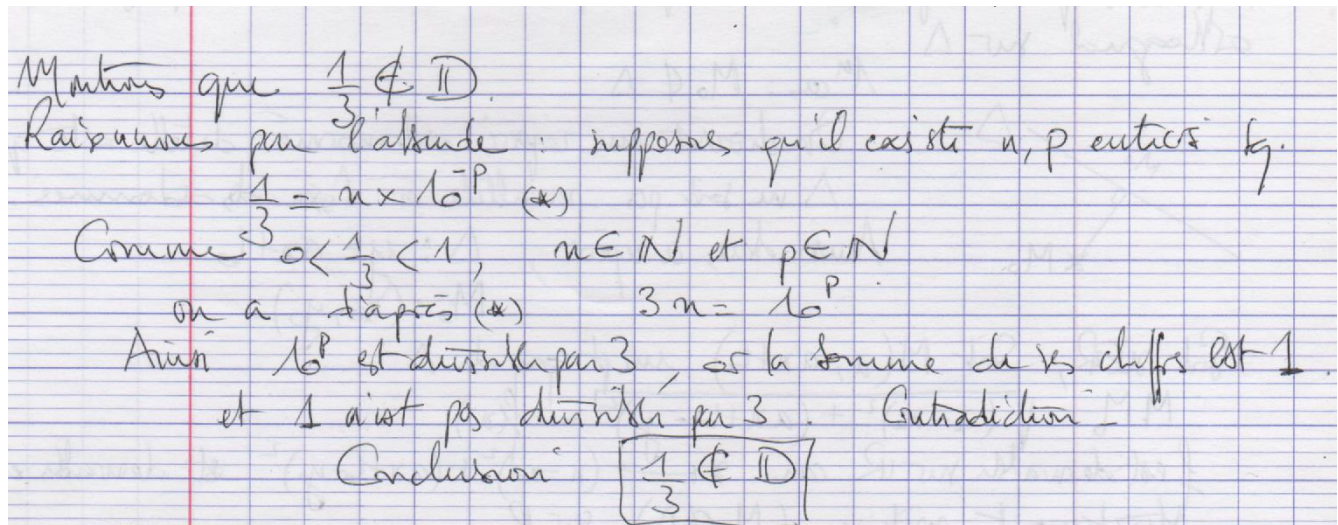 Montrons que 1/3 ∉ 𝔻.
Raisonnons par l'absurde : supposons qu'il existe n, p entiers tq.
1/3 = n × 10^-p (*)
Comme 0 < 1/3 < 1, n ∈ ℕ et p ∈ ℕ
on a d'après (*) 3n = 10^p.
Ainsi 10^p est divisible par 3, or la somme de ses chiffres est 1.
et 1 n'est pas divisible par 3. Contradiction -
Conclusion 1/3 ∉ 𝔻